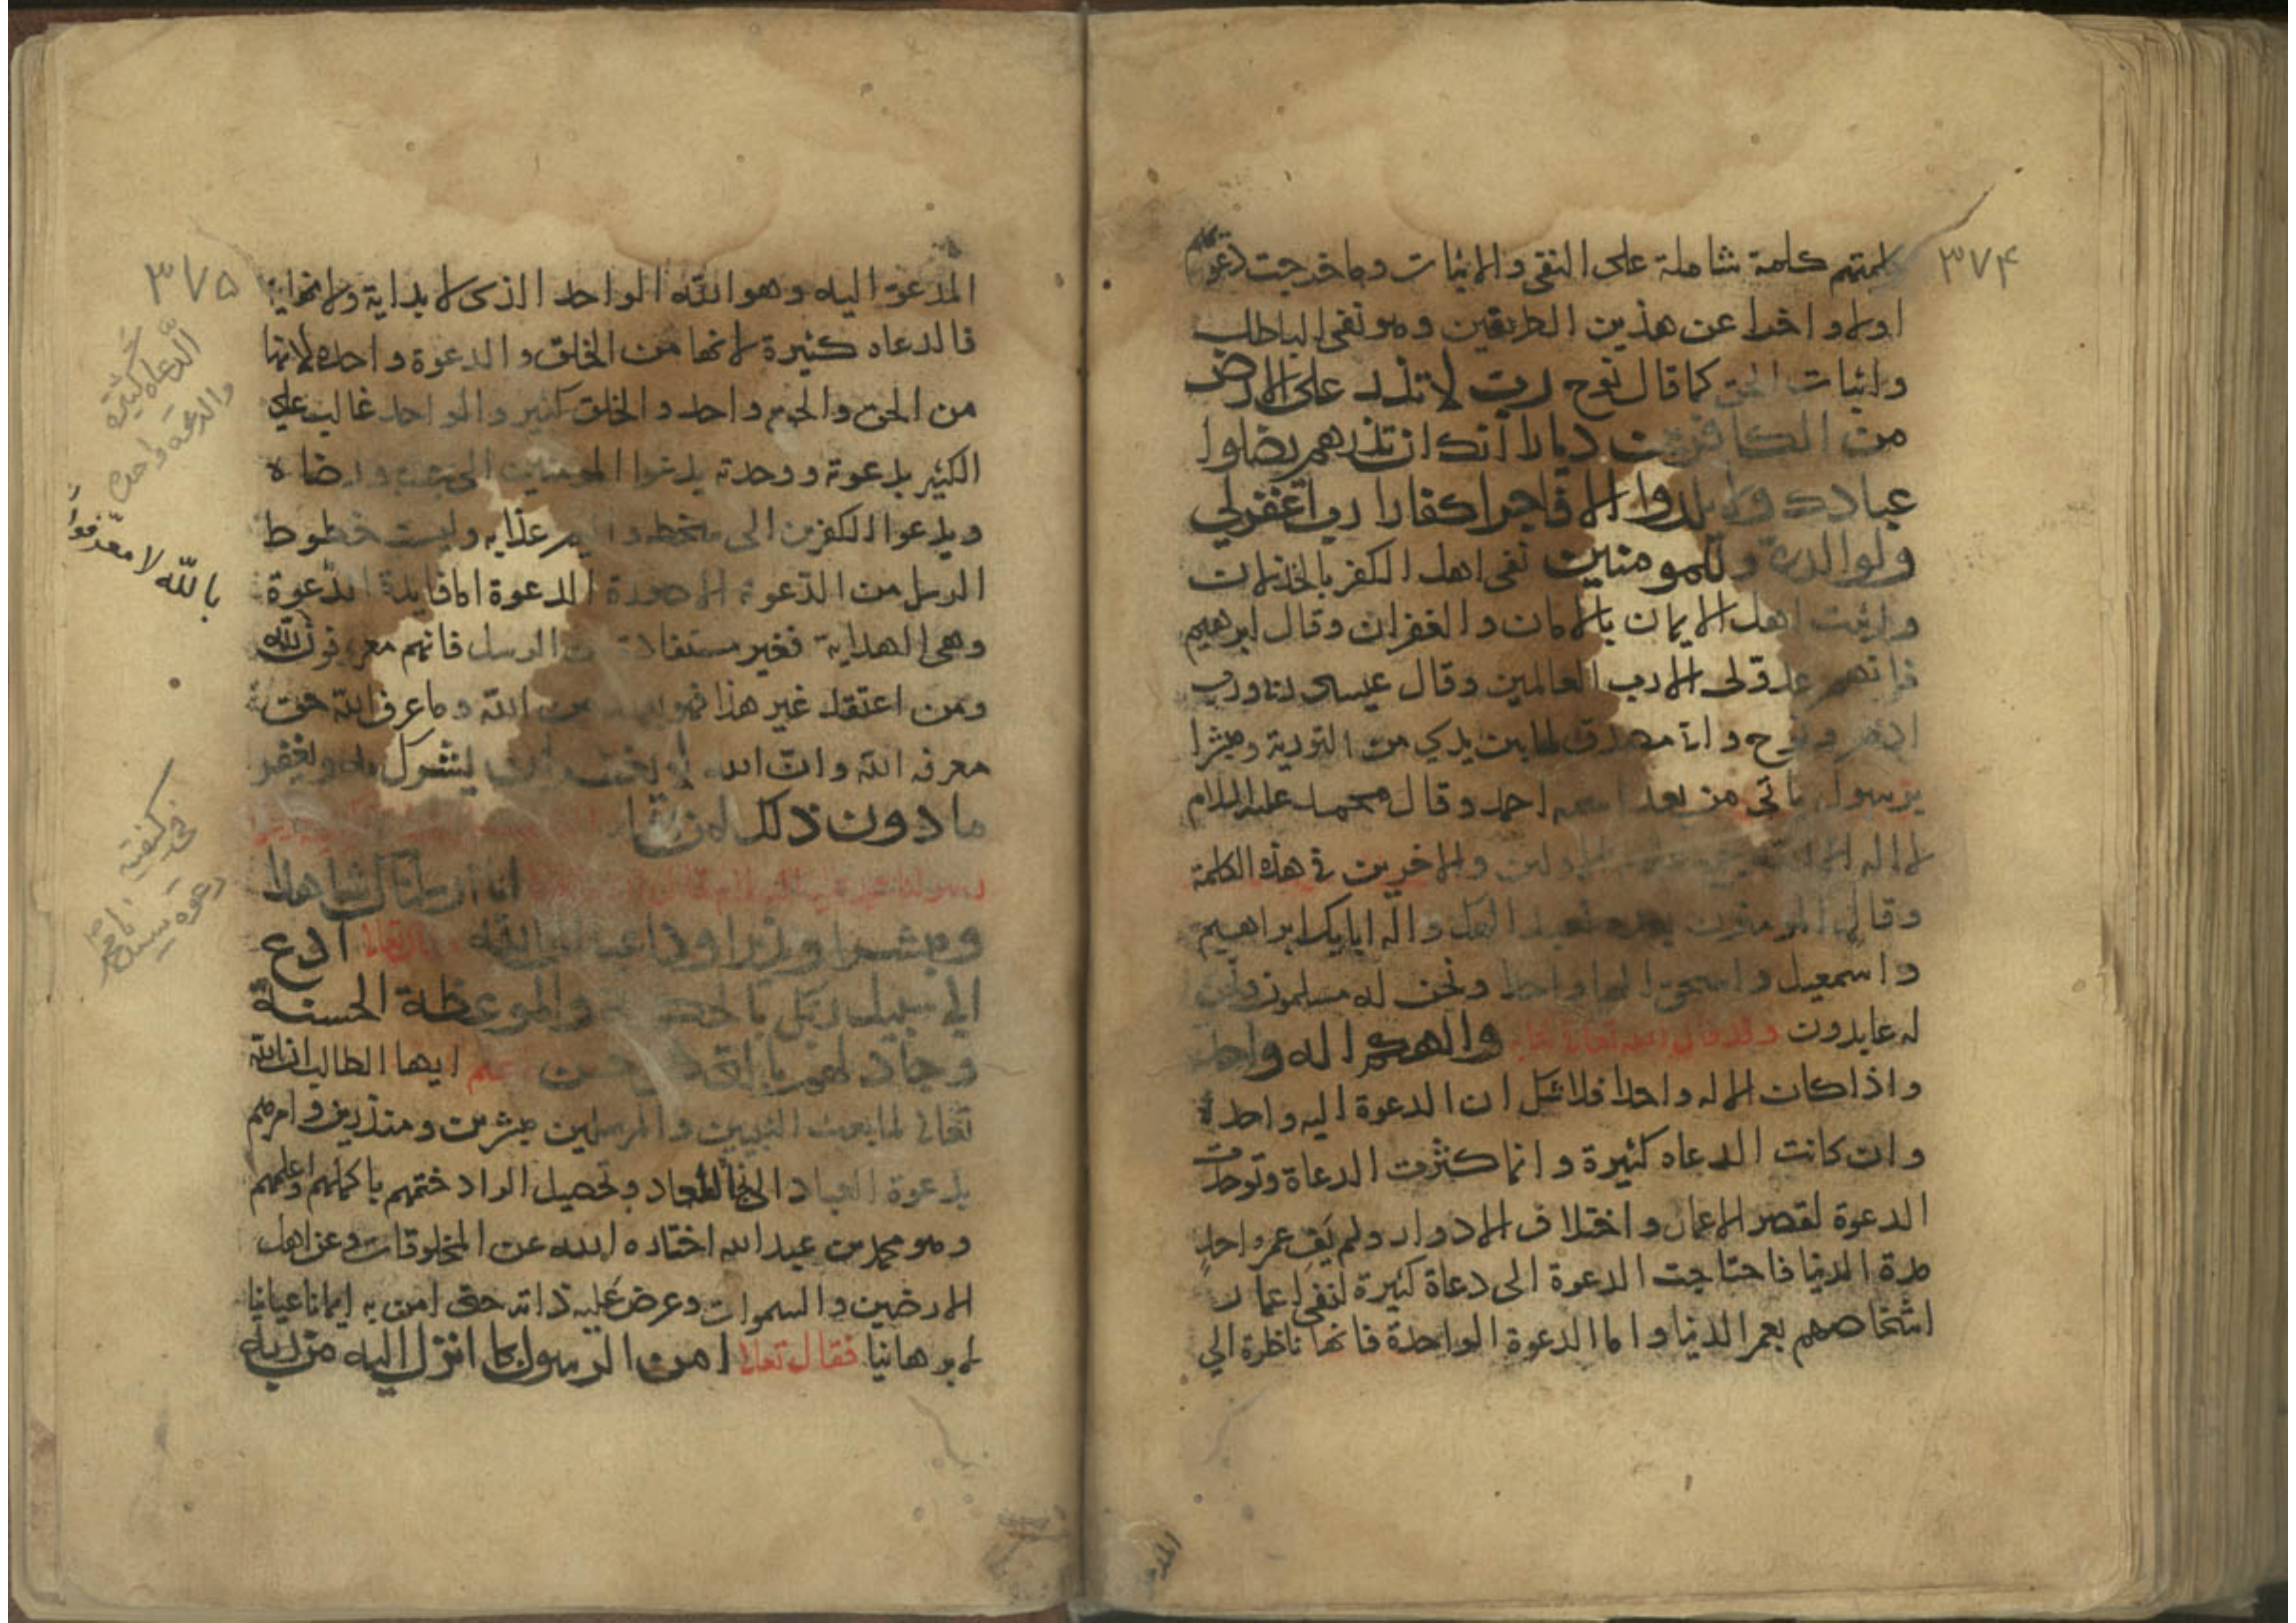 ٣٧۴
كلمتهم كلمة شاملة على النفى والاثبات وما خرجت دعوتهم
اولا واخرا عن هذين الطريقين وهو نفى الباطل
واثبات الحق كما قال نوح رب لا تذر على الارض
من الكافرين ديارا انك ان تذرهم يضلوا
عبادك ولا يلدوا الا فاجرا كفارا رب اغفرلي
ولوالدي وللمومنين نفى اهل الكفر بالخذلان
واثبت اهل الايمان بالامان والغفران وقال ابرهيم
فانهم عدو لى الا رب العالمين وقال عيسى ربنا ورب
ادم ونوح وانا مصدق لما بين يدي من التورية ومبشرا
برسول ياتى من بعد اسمه احمد وقال محمد عليه السلام
لا اله الا الله الاولين والاخرين فى هذه الكلمة
وقال المومنون نعبد الهك واله ابايك ابراهيم
واسمعيل واسحق الها واحدا ونحن له مسلمون ونحن
له عابدون وقد قال الله تعالى والهكم اله واحد
واذا كان الاله واحدا فلا شك ان الدعوة اليه واحدة
وان كانت الدعاه كثيرة وانما كثرت الدعاة وتوحدت
الدعوة لقصر الاعمار واختلاف الادوار ولم يف عمر واحد
مدة الدنيا فاحتاجت الدعوة الى دعاة كثيرة لنفى اعمار
اشخاصهم بعمر الدنيا واما الدعوة الواحدة فانها ناظرة الي
المدعو
٣٧۵
المدعو اليه وهو الله الواحد الذى لا بداية ولا نهاية
فالدعاه كثيرة لانها من الخلق والدعوة واحدة لانها
من الحق والحق واحد والخلق كثير والواحد غالب علي
الكثير بدعوة ووحدته يدعوا المومنين الى جنته ورضاه
ويدعوا الكفرين الى سخطه واليم عذابه وليست خطوط
الرسل من الدعوة الا صورة الدعوة اما فايدة الدعوة
وهى الهداية فغير مستفادة من الرسل فانهم معرفون لله
ومن اعتقد غير هذا فهو من الله وما عرف الله حق
معرفة الله وان الله لا يغفر ان يشرك به ويغفر
ما دون ذلك لمن يشا
انا ارسلناك شاهدا
ومبشرا ونذيرا وداعيا الى الله قال تعالى ادع
الي سبيل ربك بالحكمة والموعظة الحسنة
وجادلهم بالتى هى احسن اعلم ايها الطالب ان الله
تعالى لما بعث النبيين والمرسلين مبشرين ومنذرين وامرهم
بدعوة العباد الى المعاد وتحصيل الزاد ختمهم باكملهم واعلمهم
وهو محمد بن عبد الله اختاره الله عن المخلوقات وعن اهل
الارضين والسموات وعرض عليه ذاته حتى امن به ايمانا عيانيا
لا برهانيا فقال تعالى امن الرسول بما انزل اليه من ربه
الدعاه كثيرة
والدعوة واحدة
بالله لا معرفوا
فى كيفية
دعوة سيدنا محمد